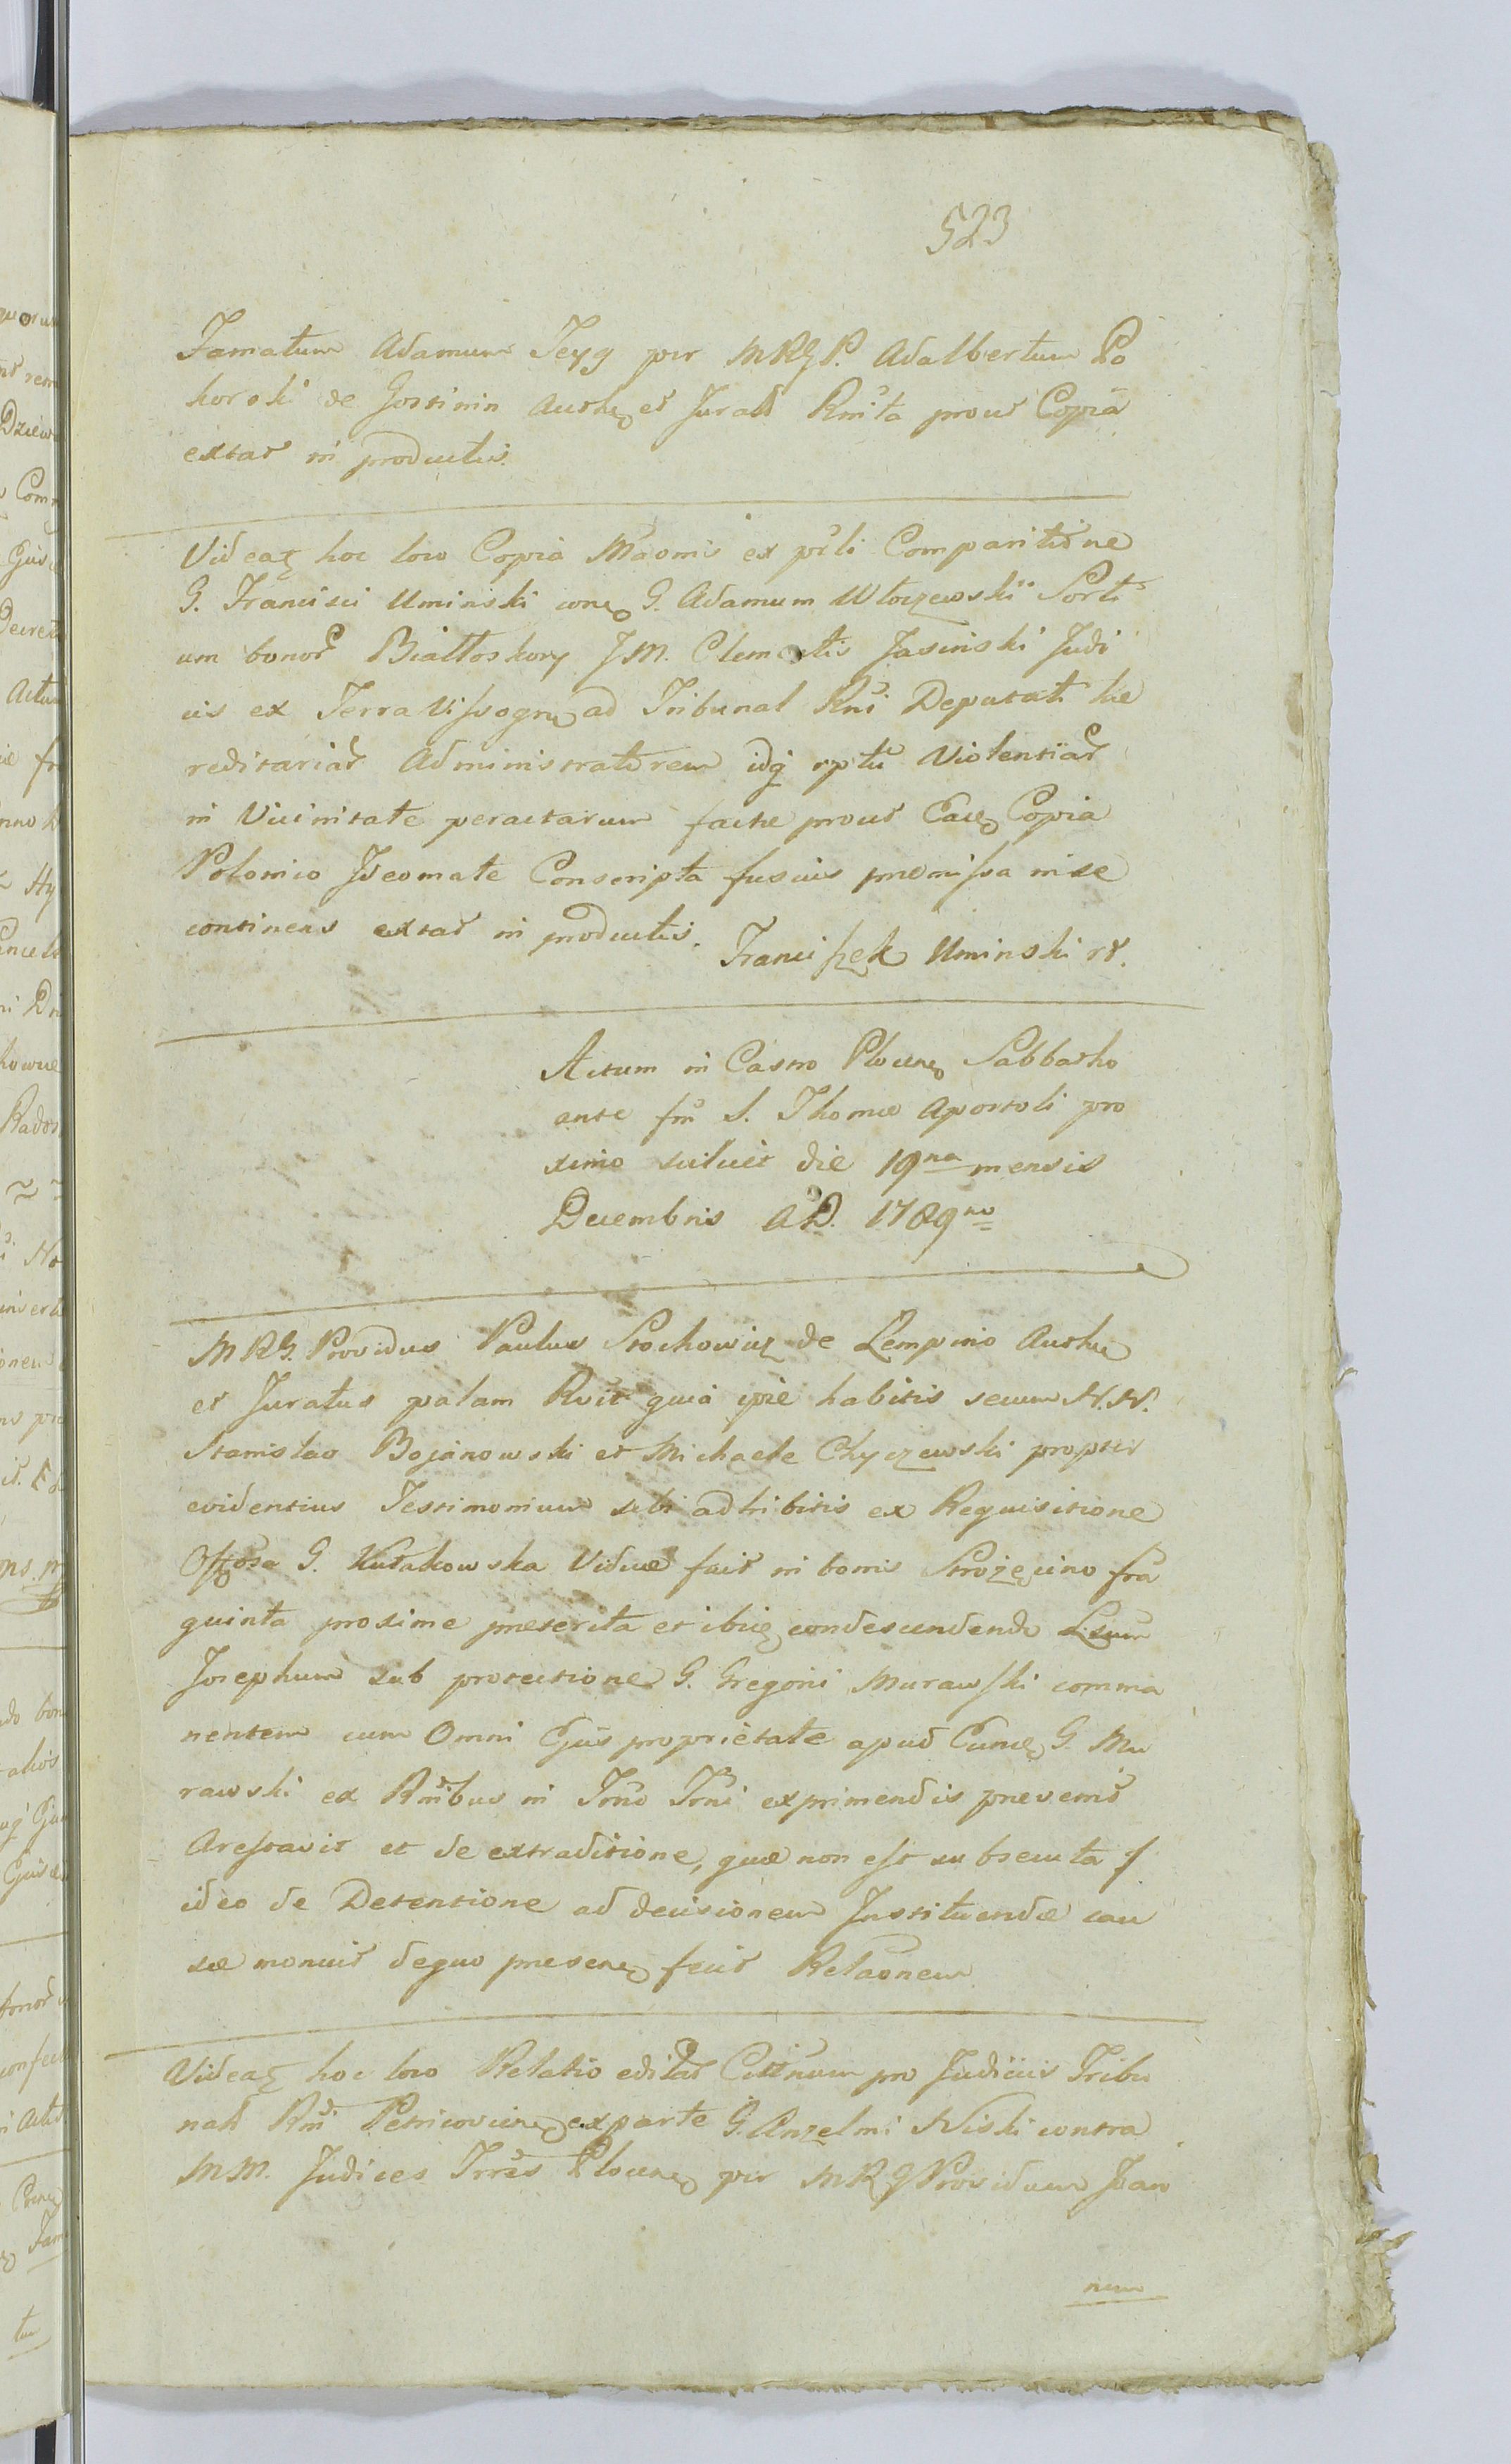 523
Famatum Adamum Teyg per MRGP. Adalbertum Po
horski de Gostinin Authen et Jurat Rnita prout Copia
extat in productis.
Videatz hoc loco Copia Maõnis ex psli Comparitiõne
G. Francisci Uminski cone G. Adamum Wtoczewski Sorti
um bonor Biattoskory JM. Clementis Jasinski Judi
cis ex Terra Vissogrn ad Tribunal Rni Deputati hæ
reditariar Administratorem idq rptu Violentiar
in Vicinitate peractarum factæ prout Eaq Copia
Polonico Ideomate Conscripta fusius præmissa in se
continens extat in productis.
Franciszek Uminski
Actum in Castro Plocen Sabbatho
ante fm S. Thomæ Apostoli pro
ximo scilicet die 19na mensis
Decembris A D. 1789no
MRG. Providus Paulus Stochowicz de Lempino Authen
et Juratus palam Rvit quia ipse habitis secum N. N.
Stanislao Bojanowski et Michaele Chyczewski propter
evidentius Testimonium sibi adhibitis ex Requisitione
G. Kutakowska Viduæ fuit in bonis Strozęcino fra
quinta proxime præterita et ibiq condescendendo
Josephum sub protectione G. Gregorii Murawski comma
nentem cum Omni Ejus proprietate apud Eunq G. Mu
rawski ex Rnibus in Trno Trni exprimendis præsenti
Arestavit et de extraditione, quæ non est subsecuta
ideo de Detentione ad decisionem Instituendæ cau
sæ monuit dequo præsene fecit Relaõnem
Videatz hoc loco Relatio editar Cittnum pro Judiciis Tribu
nali Rni Petricovien ex parte G. Anzelmi Niski contra
MM. Judices Trres Plocen per MRG Providum Joan
num